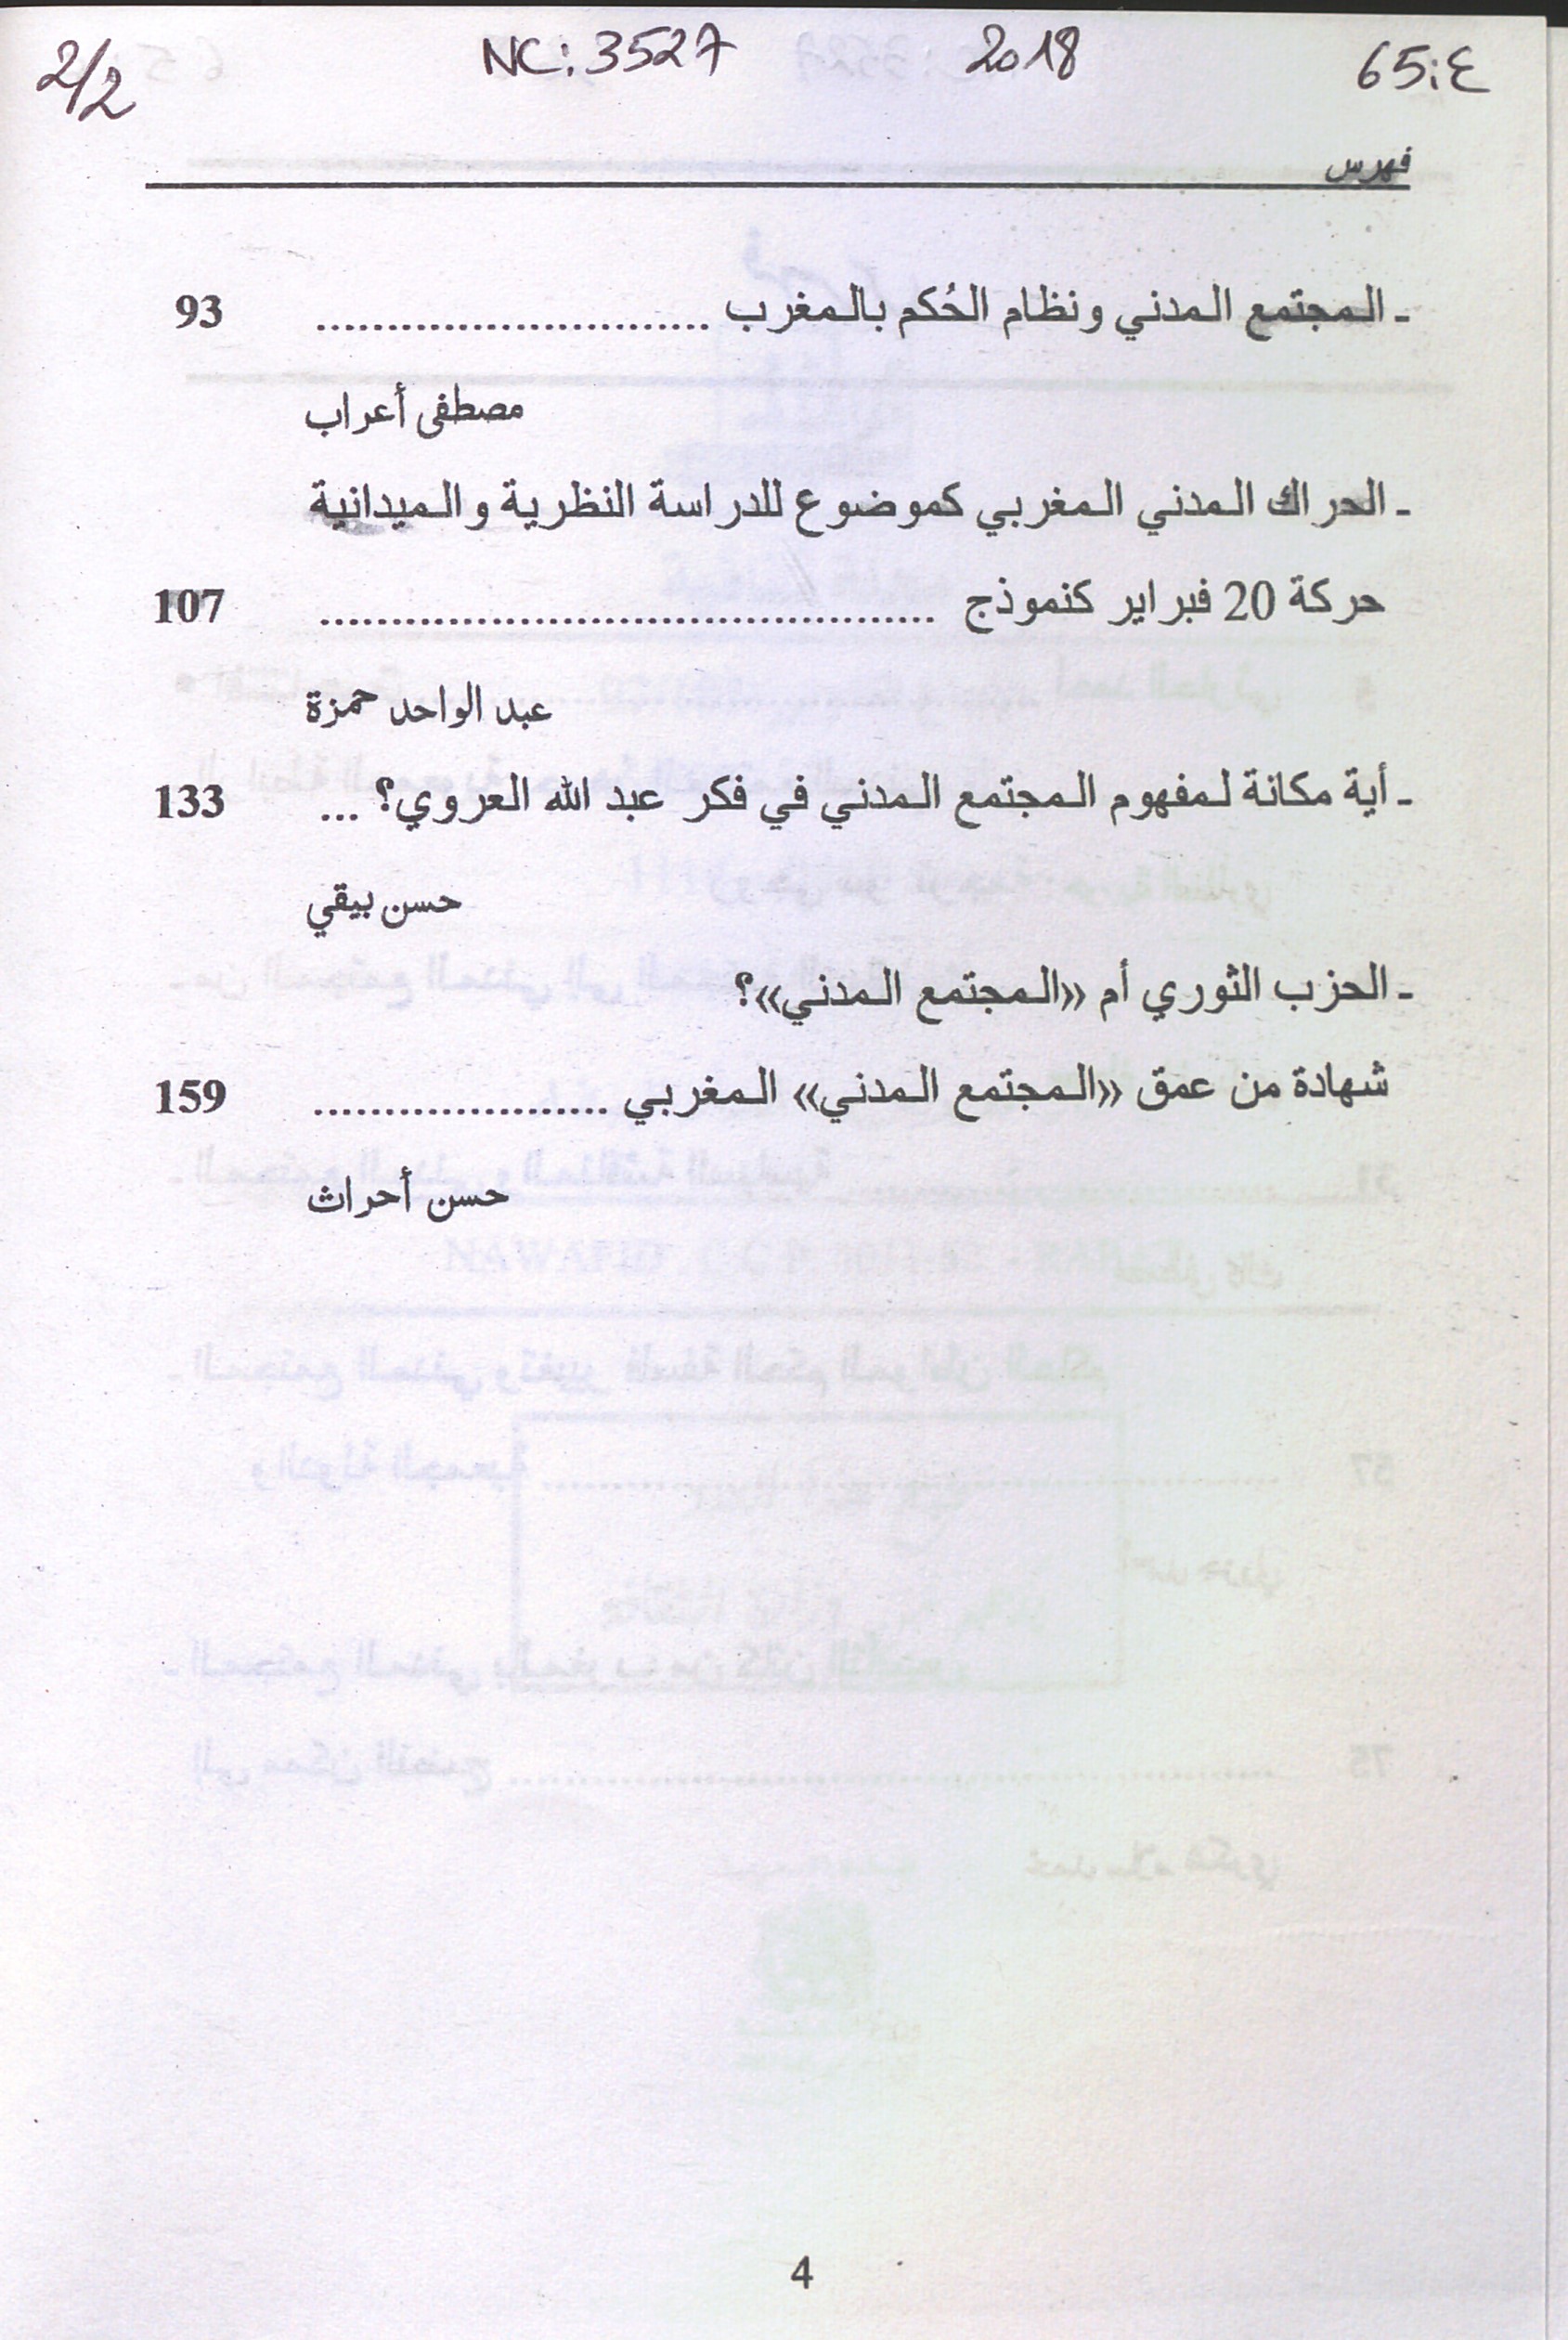 65:ع 2018 NC: 3527 2/2
فهرس
ـ المجتمع المدني ونظام الحُكم بالمغرب ........................... 93
مصطفى أعراب
ـ الحراك المدني المغربي كموضوع للدراسة النظرية والميدانية
حركة 20 فبراير كنموذج ........................................... 107
عبد الواحد حمزة
ـ أية مكانة لمفهوم المجتمع المدني في فكر عبد الله العروي؟ ... 133
حسن بيقي
ـ الحزب الثوري أم «المجتمع المدني»؟
شهادة من عمق «المجتمع المدني» المغربي ..................... 159
حسن أحراث
4